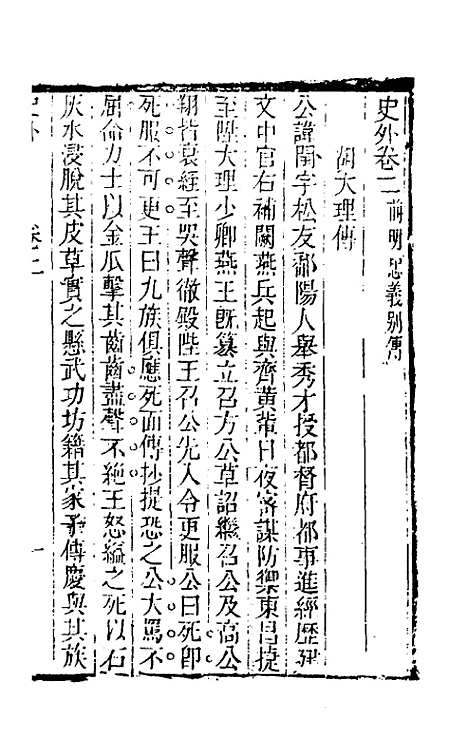 史外卷二前明忠義別傳
胡大理傳
公諱閏字松友鄱陽人舉秀才授都督府都事進經歷建
文中官右補闕燕兵起與齊黃輩日夜密謀防禦東昌捷
至陞大理少卿燕王既篡立召方公草詔繼召公及高公
翔皆衰絰至哭聲徹殿陛王召公先入令更服公曰死即
死服不可更王曰九族俱應死面傳抄提恐之公大罵不
屈命力士以金瓜擊其齒齒盡聲不絕王怒縊之死以石
灰水浸脫其皮草實之懸武功坊籍其家子傳慶與其族
史外
卷二
一